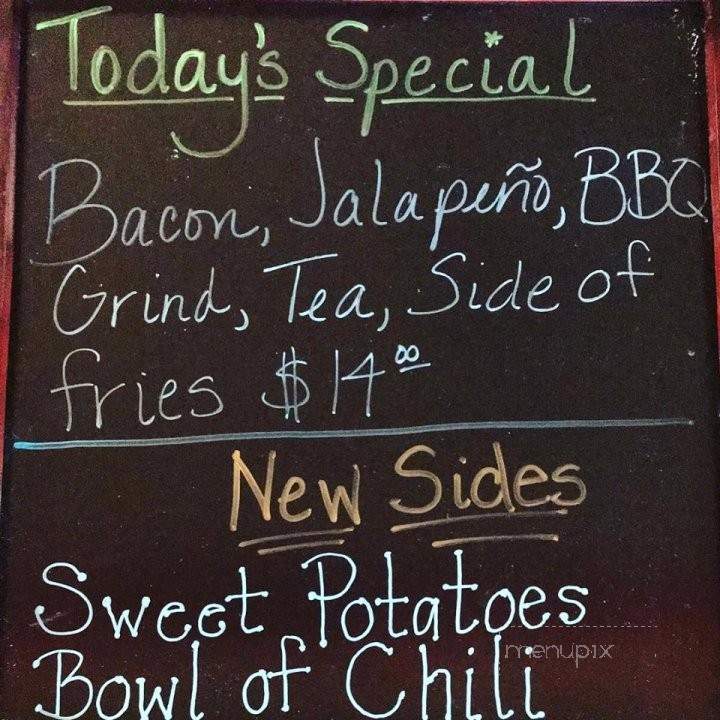 Today's Special
Bacon, Jalapeño, BBQ
Grind, Tea, Side of
fries $14.00
New Sides
Sweet Potatoes
Bowl of Chili
menupix